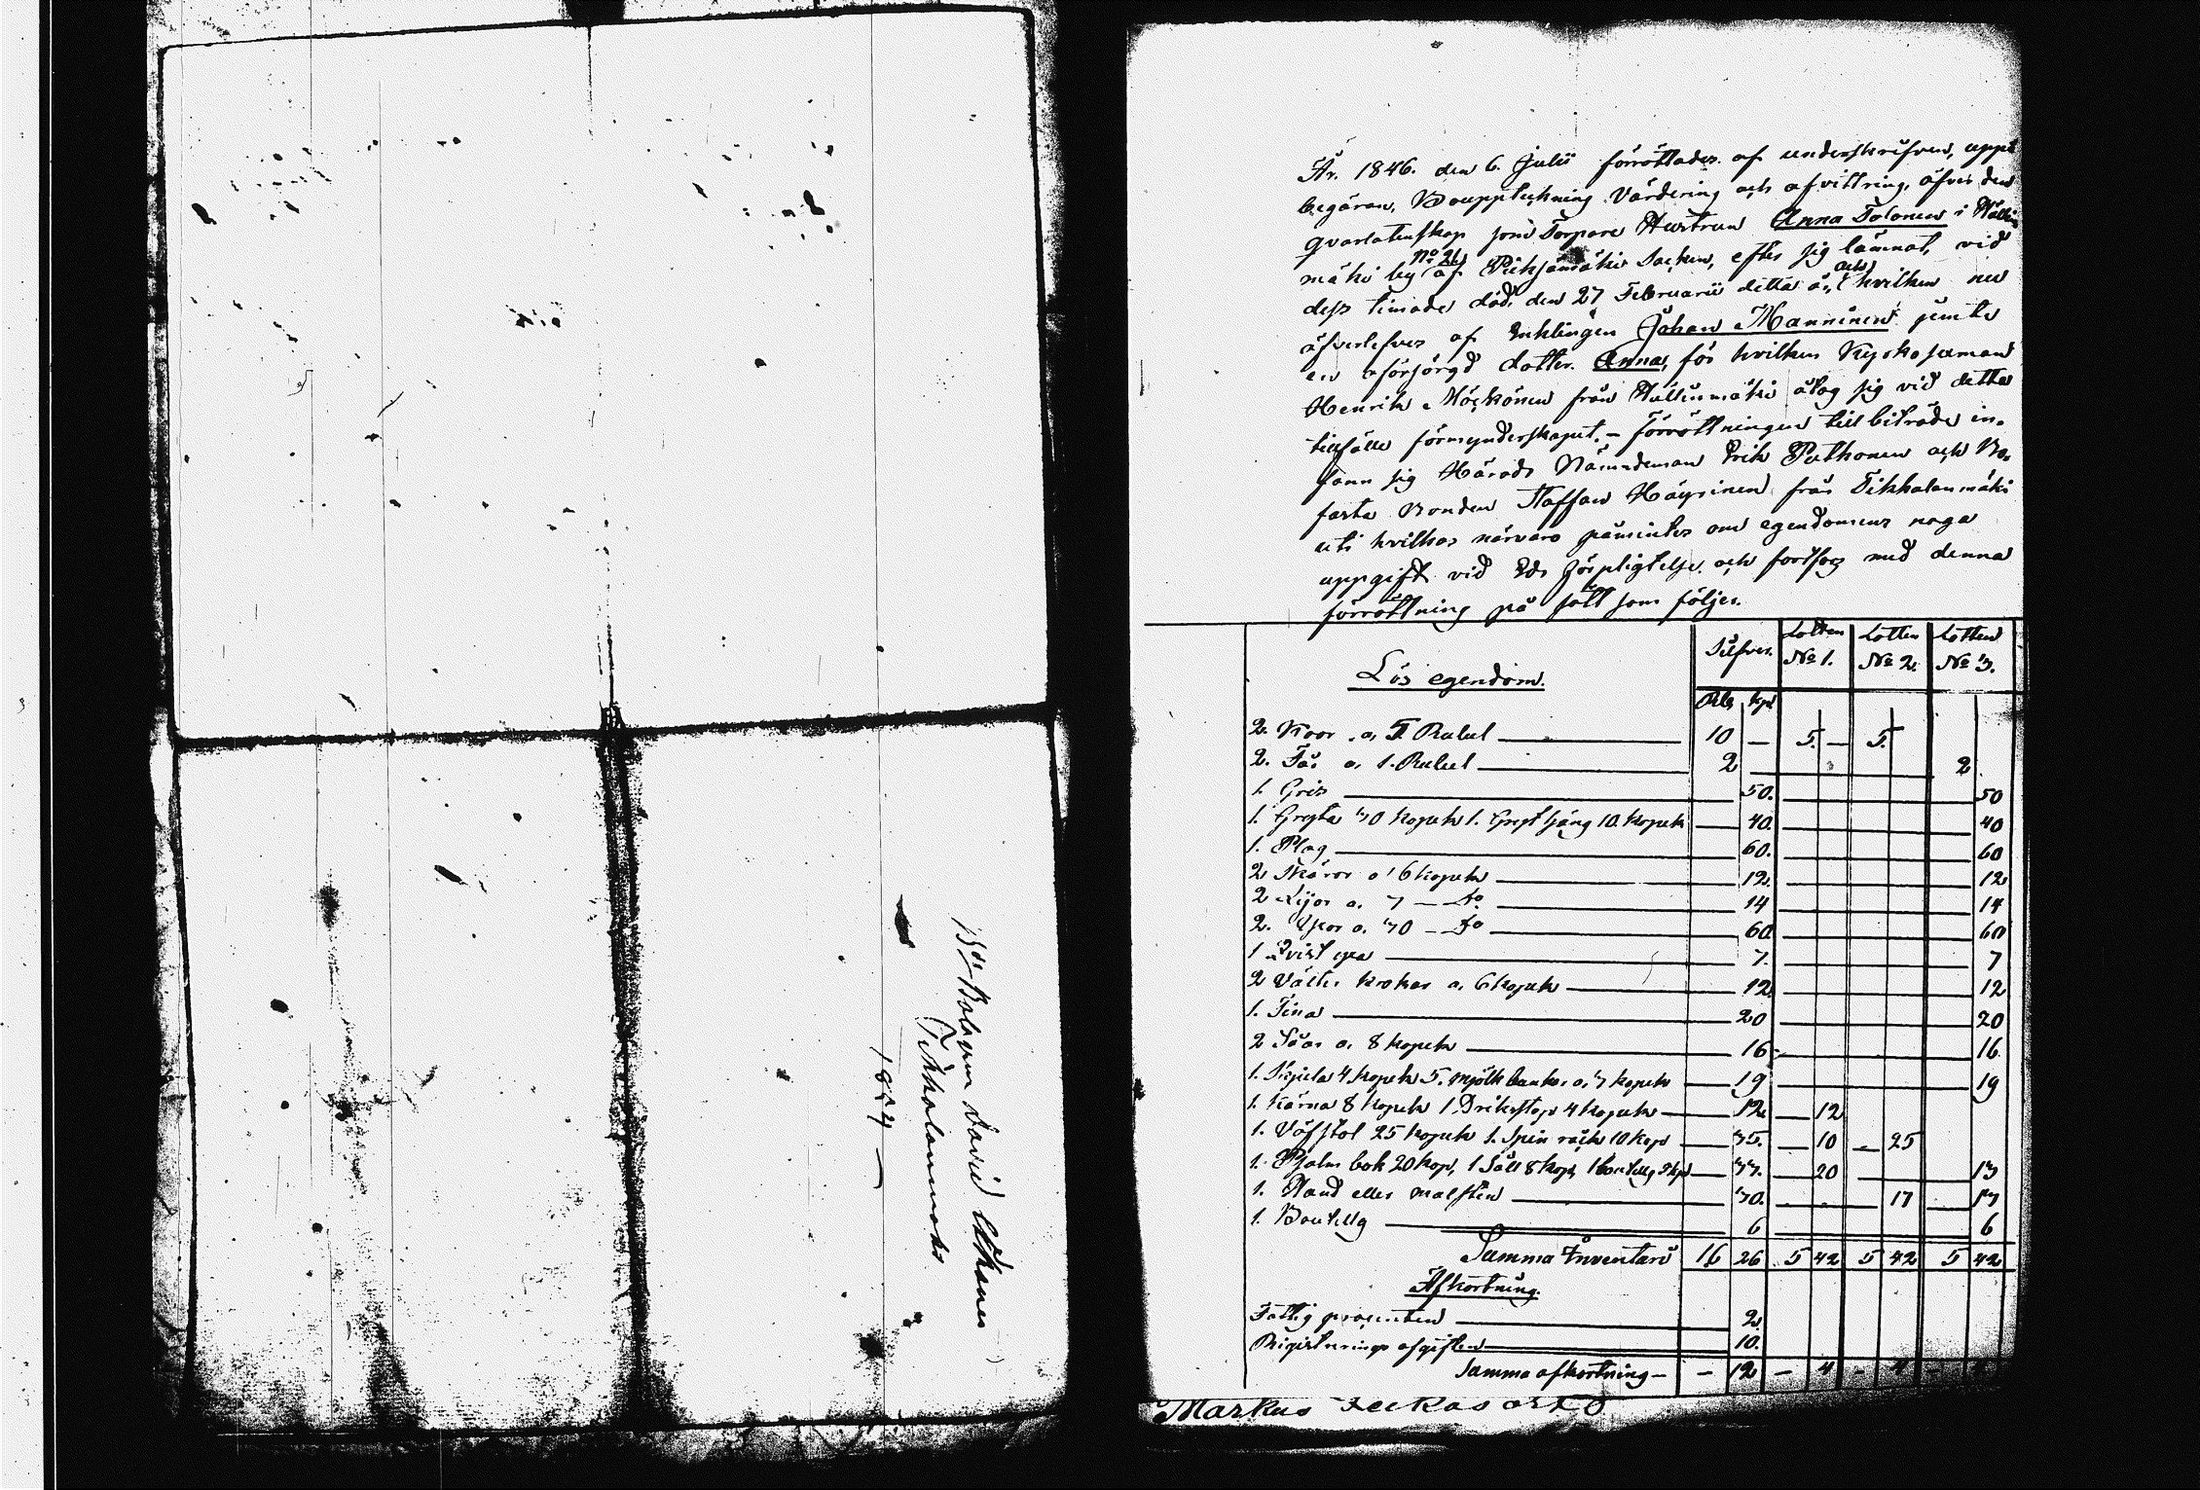 Bds Bolagsm David Ukkonen
Tikkalanmäki
1854
År. 1846. den 6. Julii förrättades af underskrifven, uppå
begäran, Bouppteckning Värdering och afvittring, öfver den
qvarlatenskap som Torpare Hustrun Anna Tolonen i Hällin
mäki by No 21 af Pieksämäki Socken, efter sig lämnat, vid
dess timade död, den 27 Februarii detta år, och hvilken nu
öfverlefves af Enklingen Johan Manninen jemte
en oförsörgd dotter. Anna, för hvilken Kyrkoförman
Henrik Möykönen från Hällinmäki åtog sig vid detta
tillfälle förmynderskapet. - Förrättningen till biträde in-
fann sig Härads Nämndeman Erik Puthonen och Bo-
fasta Bonden Staffan Häyrinen från Tikkalanmäki
uti hvilkas närvaro påmintes om egendomens noga
uppgift vid Eds förpligtelse och fortsogs med denna
förrättning på sätt som följer.
Lös egendom.
Silfver. Lotten No 1. Lotten No 2. Lotten No 3.
Rbl kop
2. Koor a 5 Rubel 10 — 5. — 5.
2. Får a 1. Rubel 2 2
1. Gris 50. 50
1. Gryta 30 kopek 1. Grept säng 10. kopek 40. 40
1. Plog 60. 60
2 Skäror a 6 kopek 12. 12
2 Lijor a. 7 — do 14 14
2. Yxor a. 30 — do 60 60
1 Qvist yxa 7. 7
2 Välter krokar a. 6 kopek 12. 12
1. Tina 20 20
2 Såar a. 8 kopek 16 16
1. Skjula 4 kopek 5. mjölk bunkar a. 3 kopek 19 19
1. Kärna 8 kopek 1. Drikstop 4 kopek 12. — 12
1. Väfstol 25 kopek 1. Spin råck 10 kop 35. — 10 — 25
1. Psalm bok 20 kop, 1 Såll 8 kop, 1 boutelg 5 kop 33. — 20 13
1. Hand eller malsten 30. 17 13
1. Boutellg 6 6
Summa Inventarii 16 26 5 42 5 42 5 42
Afkortning.
Fattig procenten 2.
Rigistrerings afgiften 10.
Summa afkortning — — 12 — 4 — 4 —
Markus